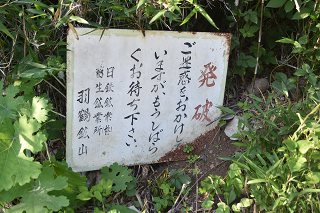 発破
ご迷惑をおかけし
いますが、もうしばら
くお待ち下さい。
日鉄鉱業㈱
羽鶴鉱山